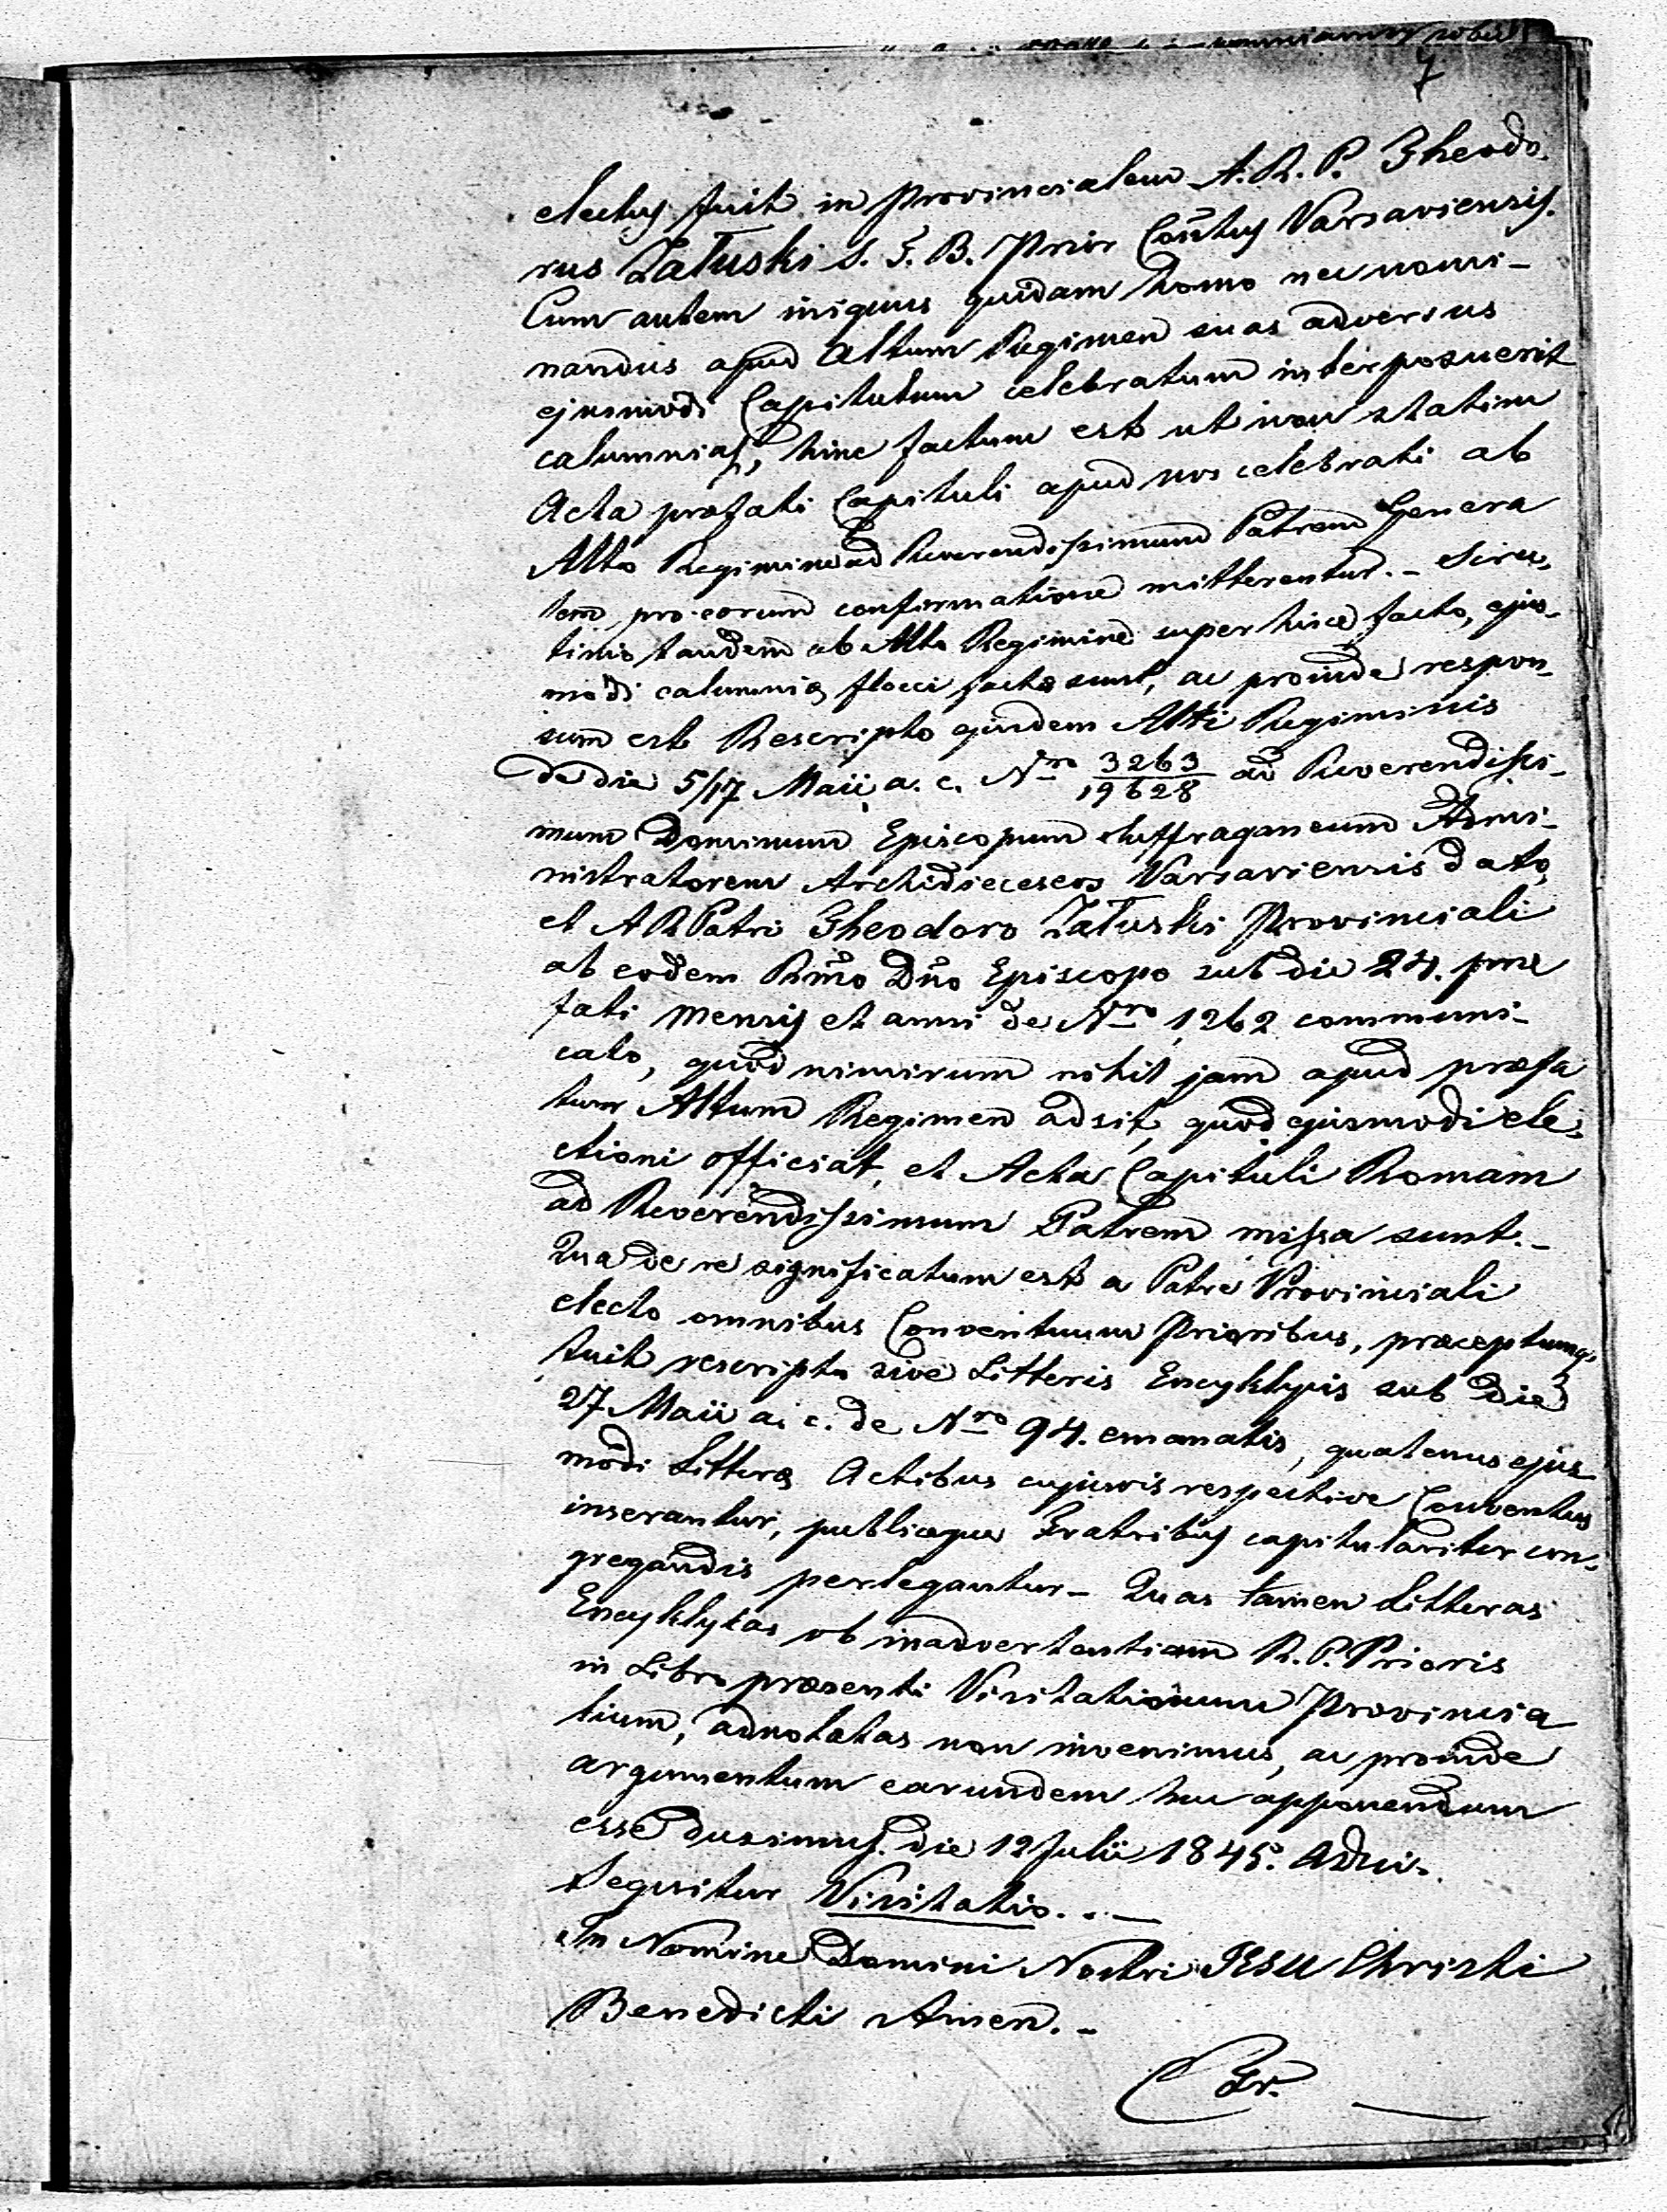 7
electus fuit in Provincialem A. R. P. Theodo-
rus Załuski S. T. B. Prior Con̄tus Varsaviensis.
Cum autem iniquus quidam homo nec nomi-
nandus apud Altum Regimen suas adversus
ejusmodi Capitulum celebratum interposuerit
calumnias, hinc factum est ut non statim
Acta præfati Capituli apud nos celebrati ab
Alto Regimine ad Reverendissimum Patrem Genera
lem, pro eorum confirmatione mitterentur. – Scru-
tinio tandem ab Alto Regimine super hisce facto, ejus-
modi calumniæ flocci factæ sunt, ac proinde respon-
sum est Rescripto ejusdem Alti Regiminis
de die 5/17 Maii a. c. Nro 3263/19628 ad Reverendissi-
mum Dominum Episcopum Suffraganeum Admi-
nistratorem Archidieceseos Varsaviensis dato,
et A R Patri Theodoro Załuski Provinciali
ab eodem Rm̄o Dn̄o Episcopo sub die 24. præ
fati Mensis et anni de Nro 1262 communi-
cato, quod nimirum nihil jam apud præfa
tum Altum Regimen adsit, quod ejusmodi ele-
ctioni officiat, et Acta Capituli Romam
ad Reverendissimum Patrem missa sunt. –
Qua de re significatum est a Patre Provinciali
electo omnibus Conventuum Prioribus, præceptumq.
fuit rescripto sive Litteris Encyklycis sub die
27 Maii a. c. de Nro 94. emanatis, quatenus ejus
modi Litteræ Actibus cujusvis respective Conventus
inserantur, publiceque Fratribus capitulariter con-
gregandis perlegantur – Quas tamen Litteras
Encyklykas ob inadvertentiam R. P. Prioris
in Libro præsenti Visitationum Provincia
lium, adnotatas non invenimus, ac proinde
argumentum earundem huc apponendum
esse duximus. die 12 Julii 1845. Anni.
Sequitur Visitatio. . –
In Nomine Domini Nostri JESU Christi
Benedicti Amen. –
Fr.